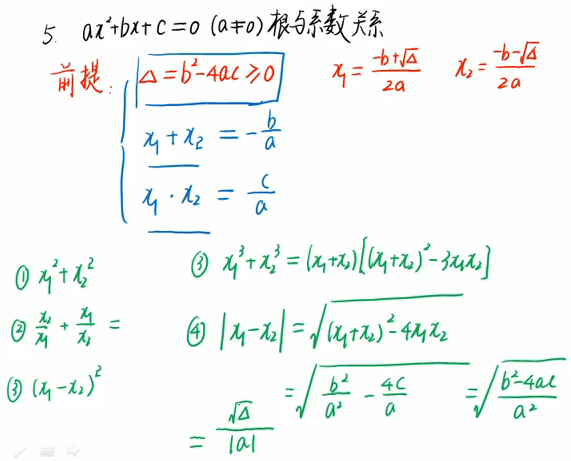 5. ax²+bx+c=0 (a≠0) 根与系数关系
前提: Δ=b²-4ac≥0 x₁=(-b+√Δ)/2a x₂=(-b-√Δ)/2a
x₁+x₂=-b/a
x₁·x₂=c/a
① x₁²+x₂²
② x₂/x₁+x₁/x₂=
③ (x₁-x₂)²
③ x₁³+x₂³=(x₁+x₂)[(x₁+x₂)²-3x₁x₂]
④ |x₁-x₂|=√((x₁+x₂)²-4x₁x₂)
=√(b²/a²-4c/a)=√((b²-4ac)/a²)
=√Δ/|a|